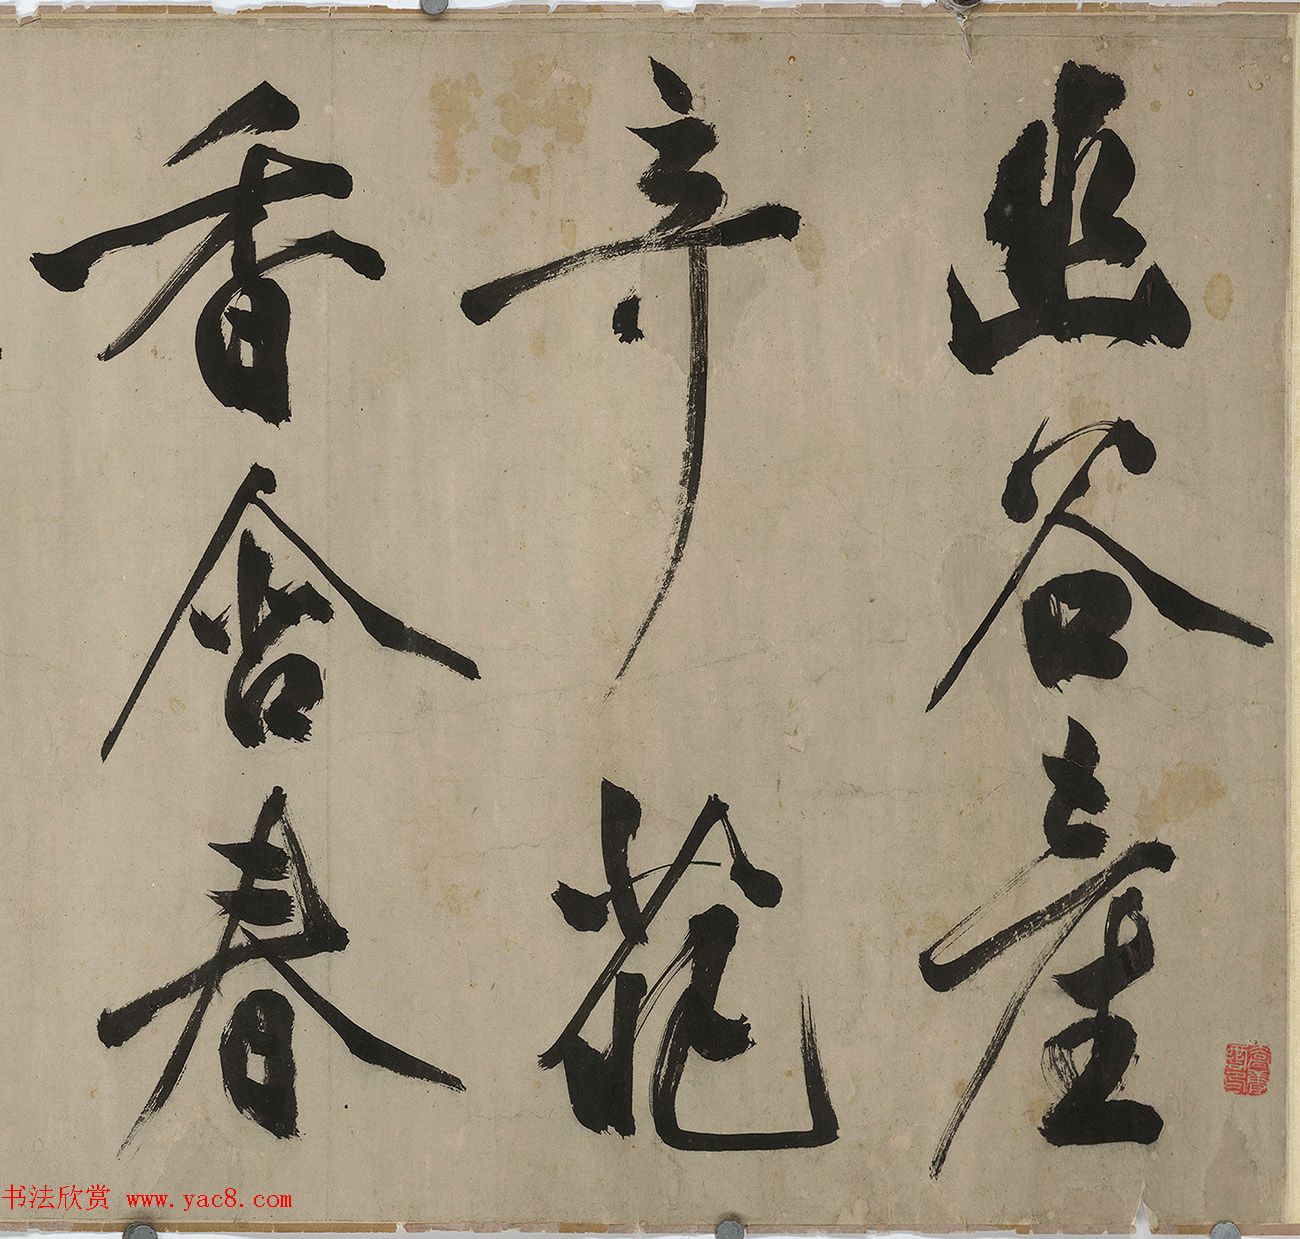 幽谷產
竒葩
香含春
书法欣赏 www.yac8.com